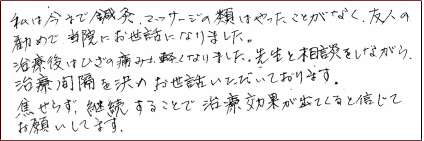 私は今まで鍼灸、マッサージの類はやったことがなく、友人の
勧めで当院にお世話になりました。
治療後はひざの痛みも軽くなりました。先生と相談をしながら、
治療間隔を決めお世話いただいております。
焦せらず、継続することで治療効果が出てくると信じて
お願いしてます。